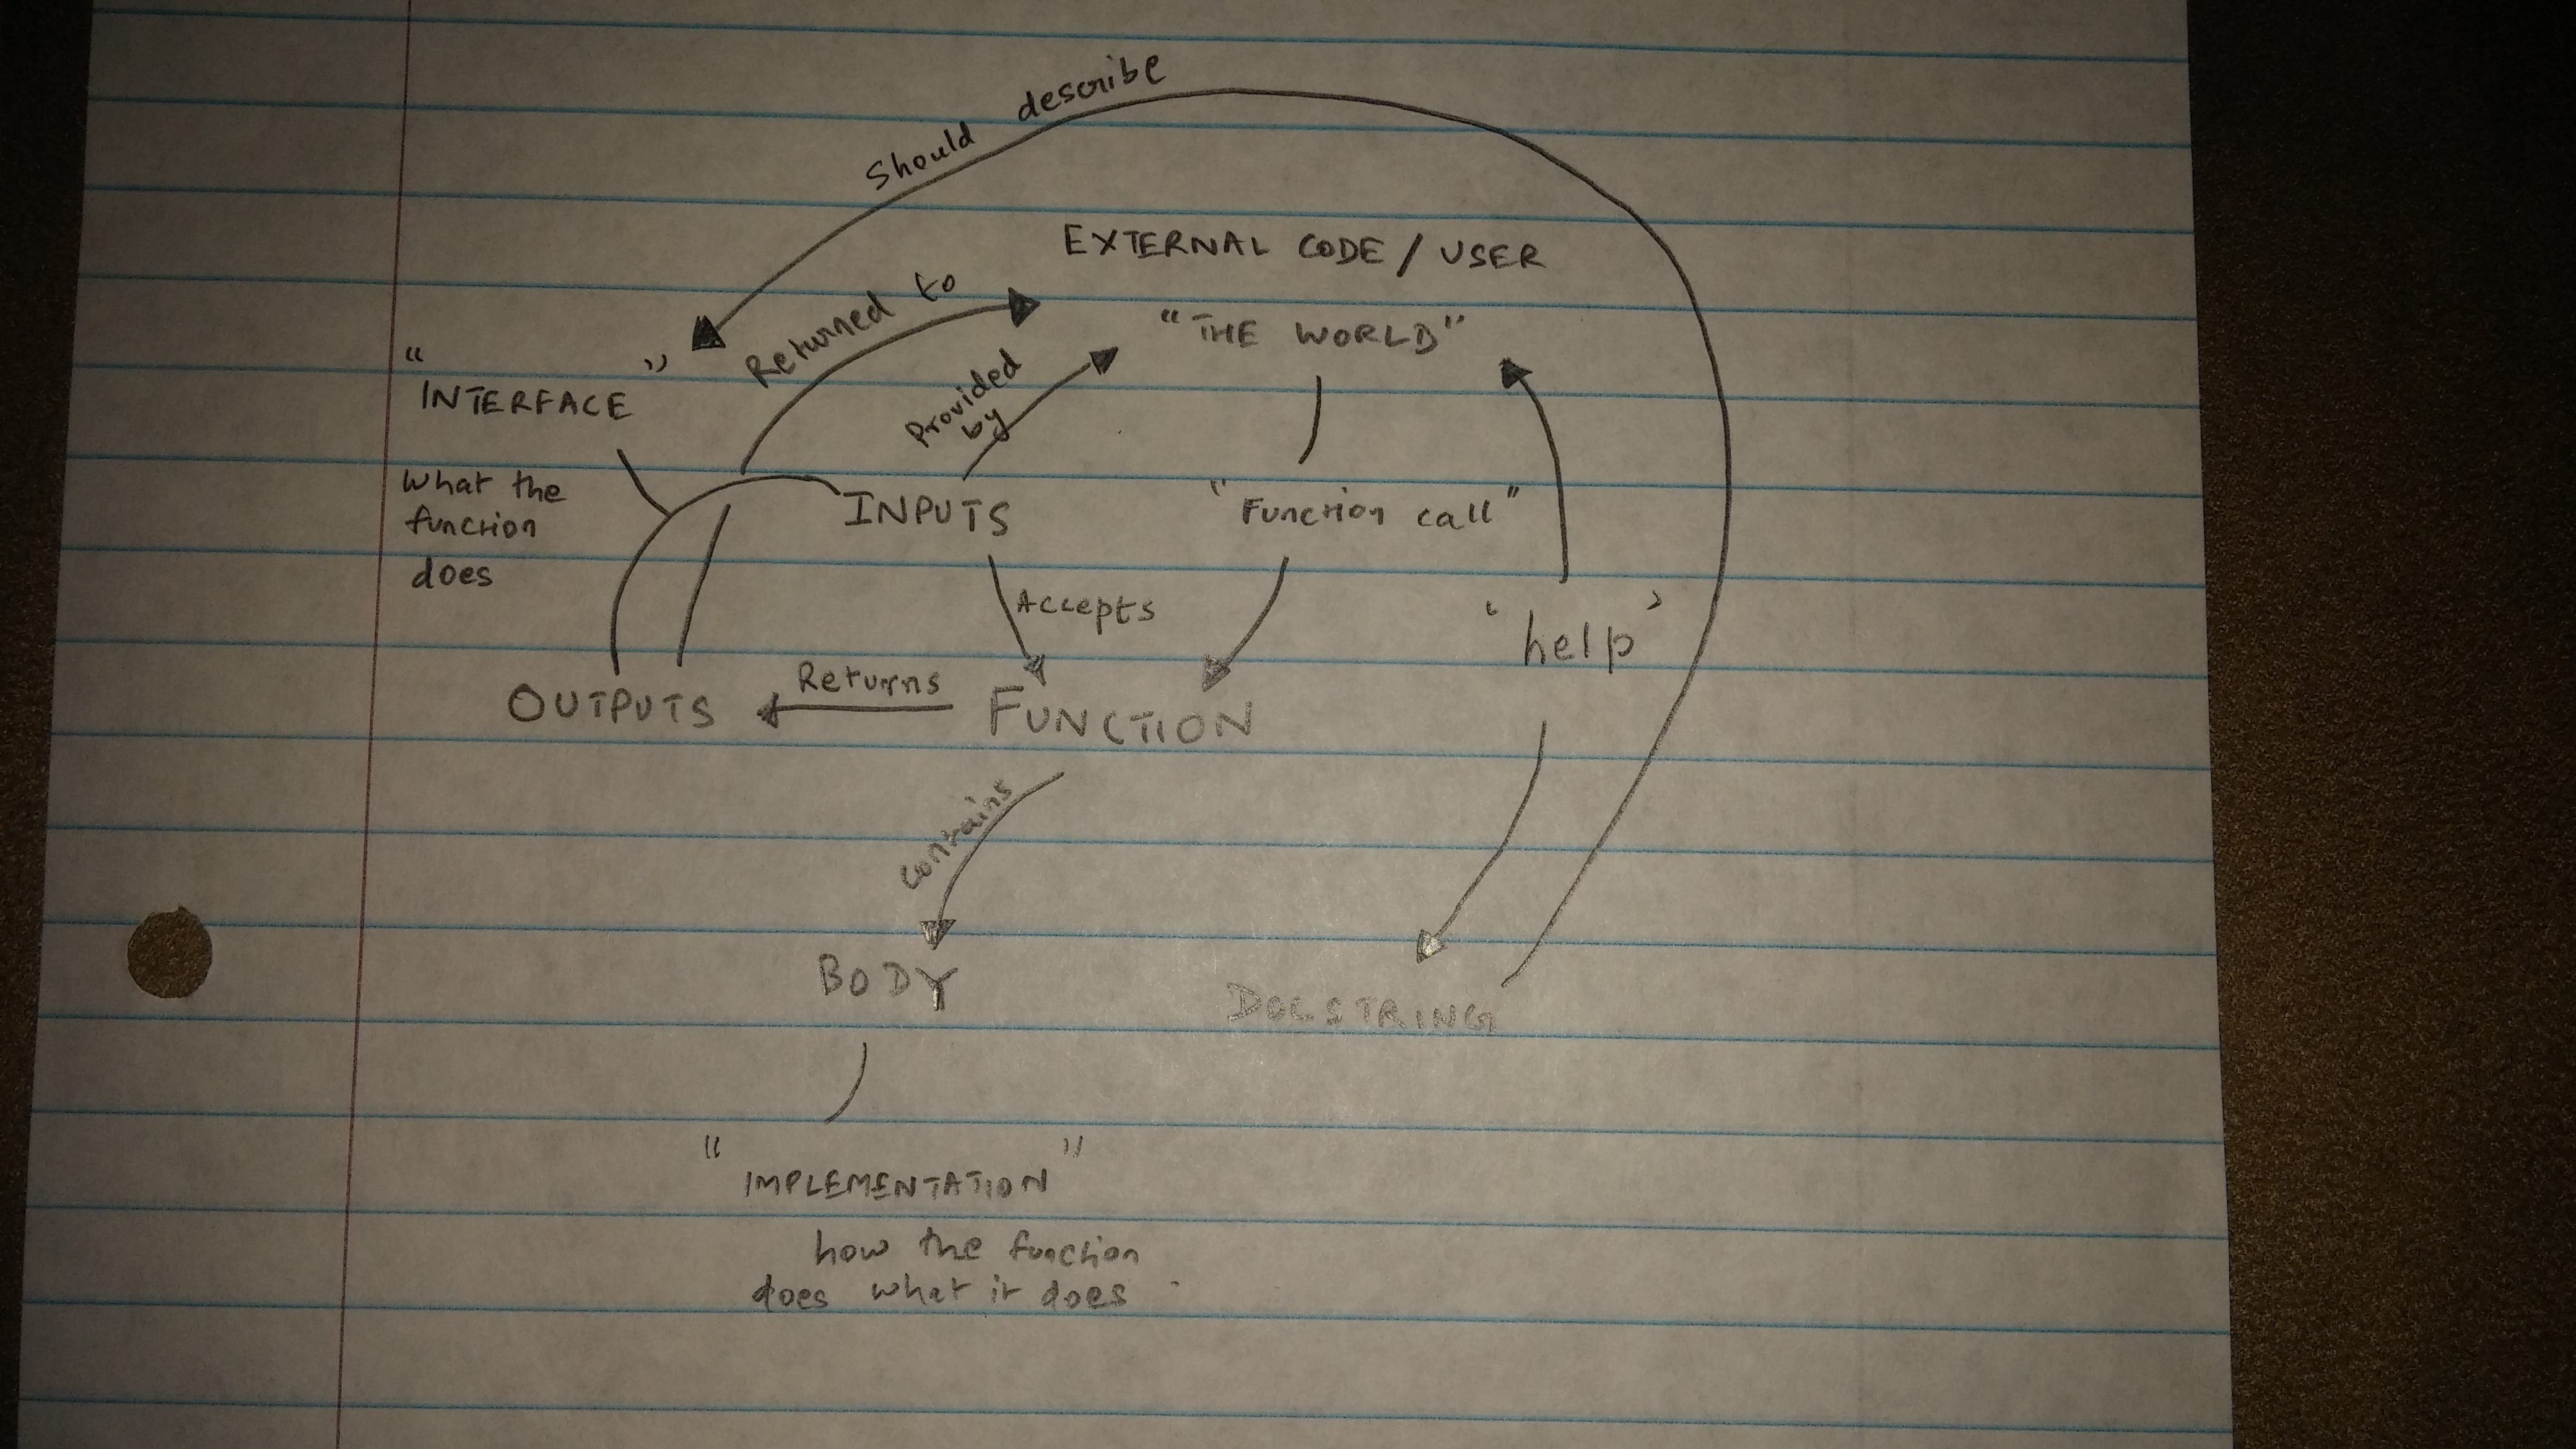 Should describe
EXTERNAL CODE / USER
Returned to
"THE WORLD"
Provided
by
"INTERFACE"
What the
function
does
INPUTS
"Function call"
Accepts
'help'
Returns
OUTPUTS
FUNCTION
Contains
BODY
DOCSTRING
"IMPLEMENTATION"
how the function
does what it does